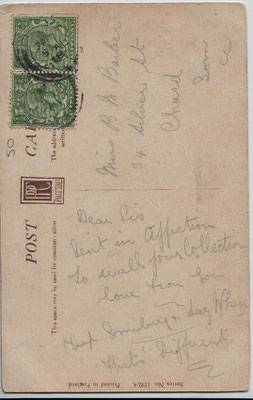 POST CARD
This space may be used for communication
The address
Miss B M Barker
34 Silver St
Chard
Som
Dear Sis
Sent in Affection
To swell your Collection
love from
Keep Smiling & Say When
thats Different
Series No. 1192/4.
Printed in England.
50